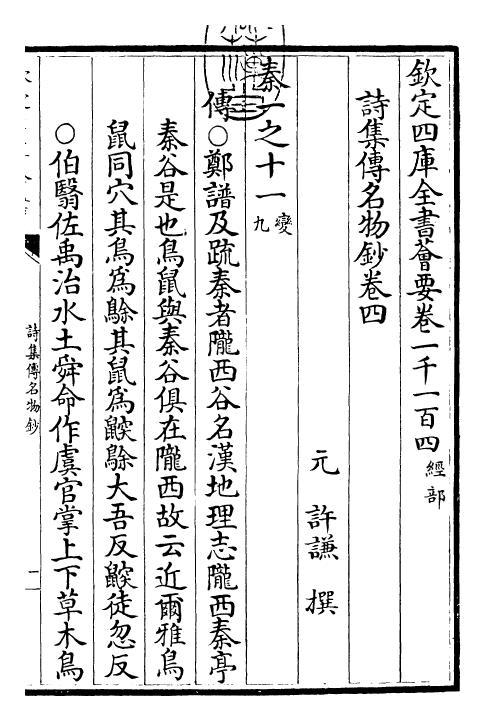 欽定四庫全書薈要卷一千一百四 經部
詩集傳名物鈔卷四
元 許謙 撰
秦一之十一 變九
傳○鄭譜及疏秦者隴西谷名漢地理志隴西秦亭
秦谷是也鳥鼠與秦谷俱在隴西故云近爾雅鳥
鼠同穴其鳥為鵌其鼠為鼵鵌大吾反鼵徒忽反
○伯翳佐禹治水土舜命作虞官掌上下草木鳥
詩集傳名物鈔
一